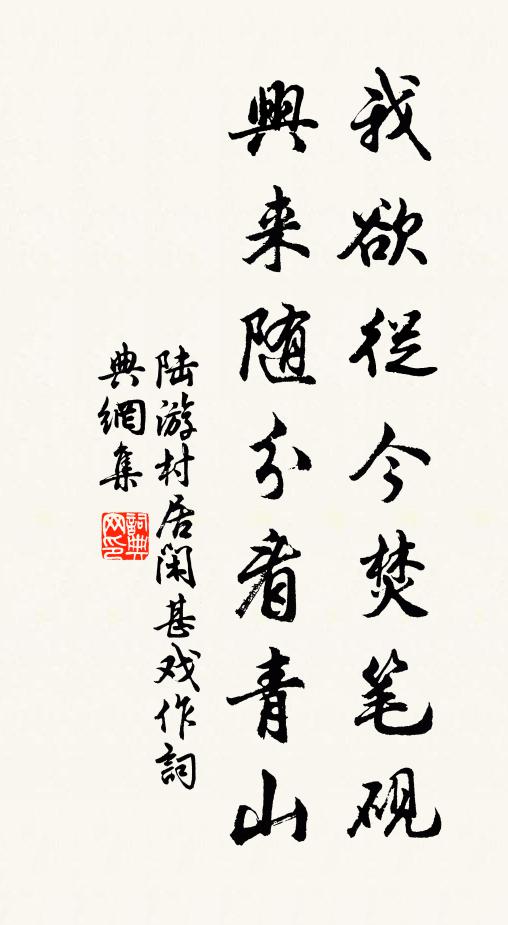 我欲從今焚笔硯
興来随分看青山
陆游村居闲甚戏作詞
典網集
詞典网印